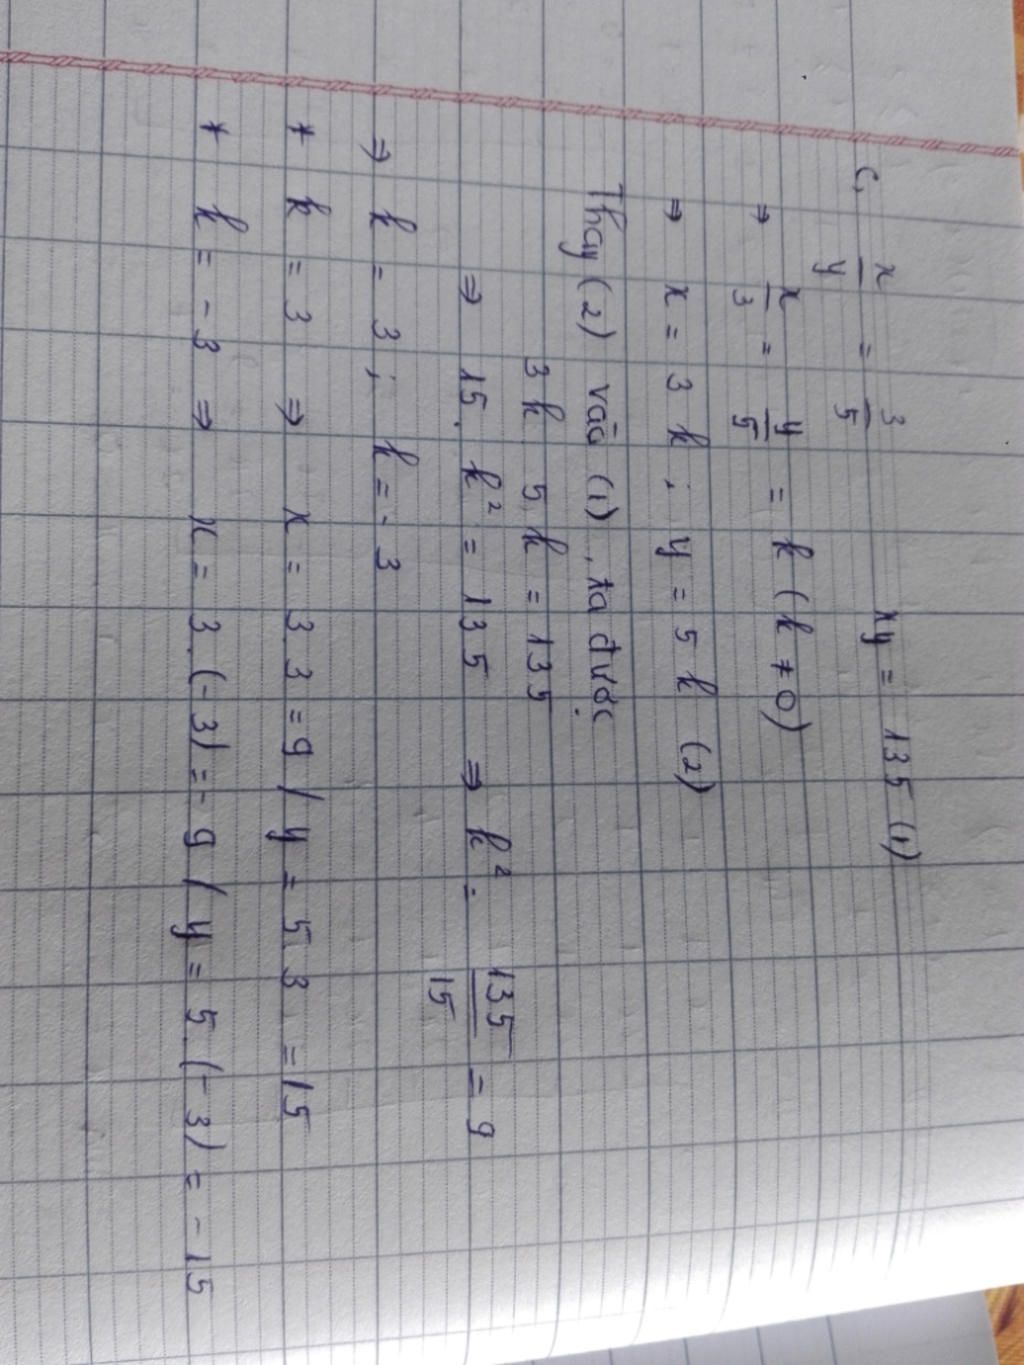 c, x/y = 3/5 xy = 135 (1)
⇒ x/3 = y/5 = k (k ≠ 0)
⇒ x = 3k ; y = 5k (2)
Thay (2) vào (1), ta được
3k . 5k = 135
⇒ 15 . k² = 135 ⇒ k² = 135/15 = 9
⇒ k = 3 ; k = -3
* k = 3 ⇒ x = 3 . 3 = 9 / y = 5 . 3 = 15
* k = -3 ⇒ x = 3 . (-3) = -9 / y = 5 . (-3) = -15